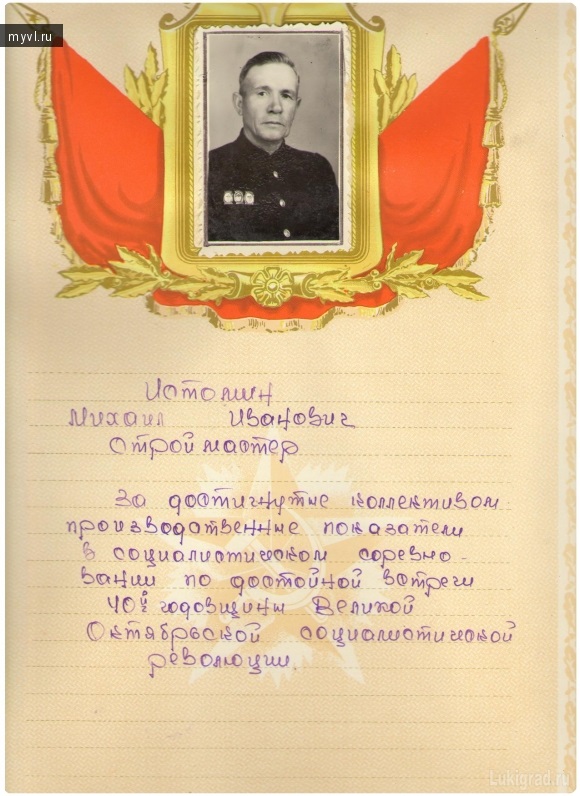 myvl.ru
Истомин
Михаил Иванович
Строймастер
За достигнутые коллективом
производственные показатели
в социалистическом соревно-
вании по достойной встречи
40й годовщины Великой
Октябрьской социалистической
революции.
Lukigrad.ru